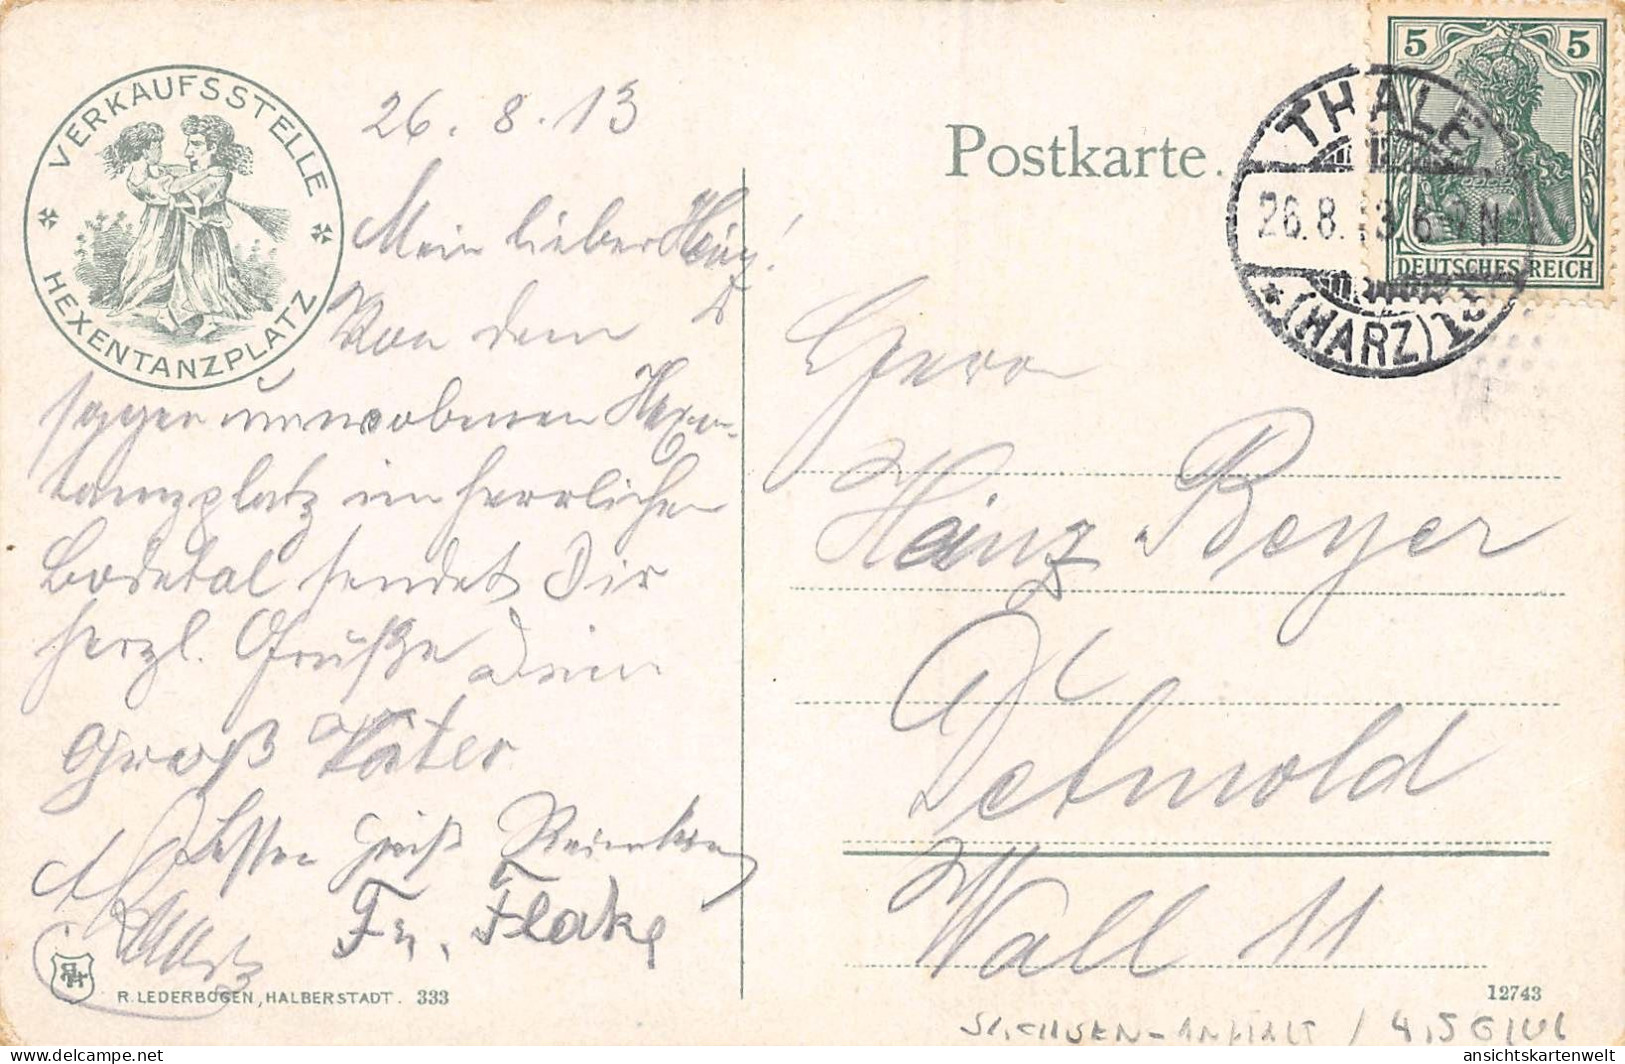 VERKAUFSSTELLE
HEXENTANZPLATZ
26. 8. 13
Mein lieber Heinz!
Von dem
sagenumwobenen Hexen-
tanzplatz im herrlichen
Bodetal sendet Dir
herzl. Grüße Dein
Groß Vater
Besten Gruß
Fr. Flake
R. LEDERBOGEN, HALBERSTADT. 333
Postkarte.
5 5
DEUTSCHES REICH
THALE
26.8.13. 6-7 N
* (HARZ)
Herrn
Heinz Beyer
Detmold
Wall 11
12743
SACHSEN-ANHALT /
Delcampe.net
ansichtskartenwelt